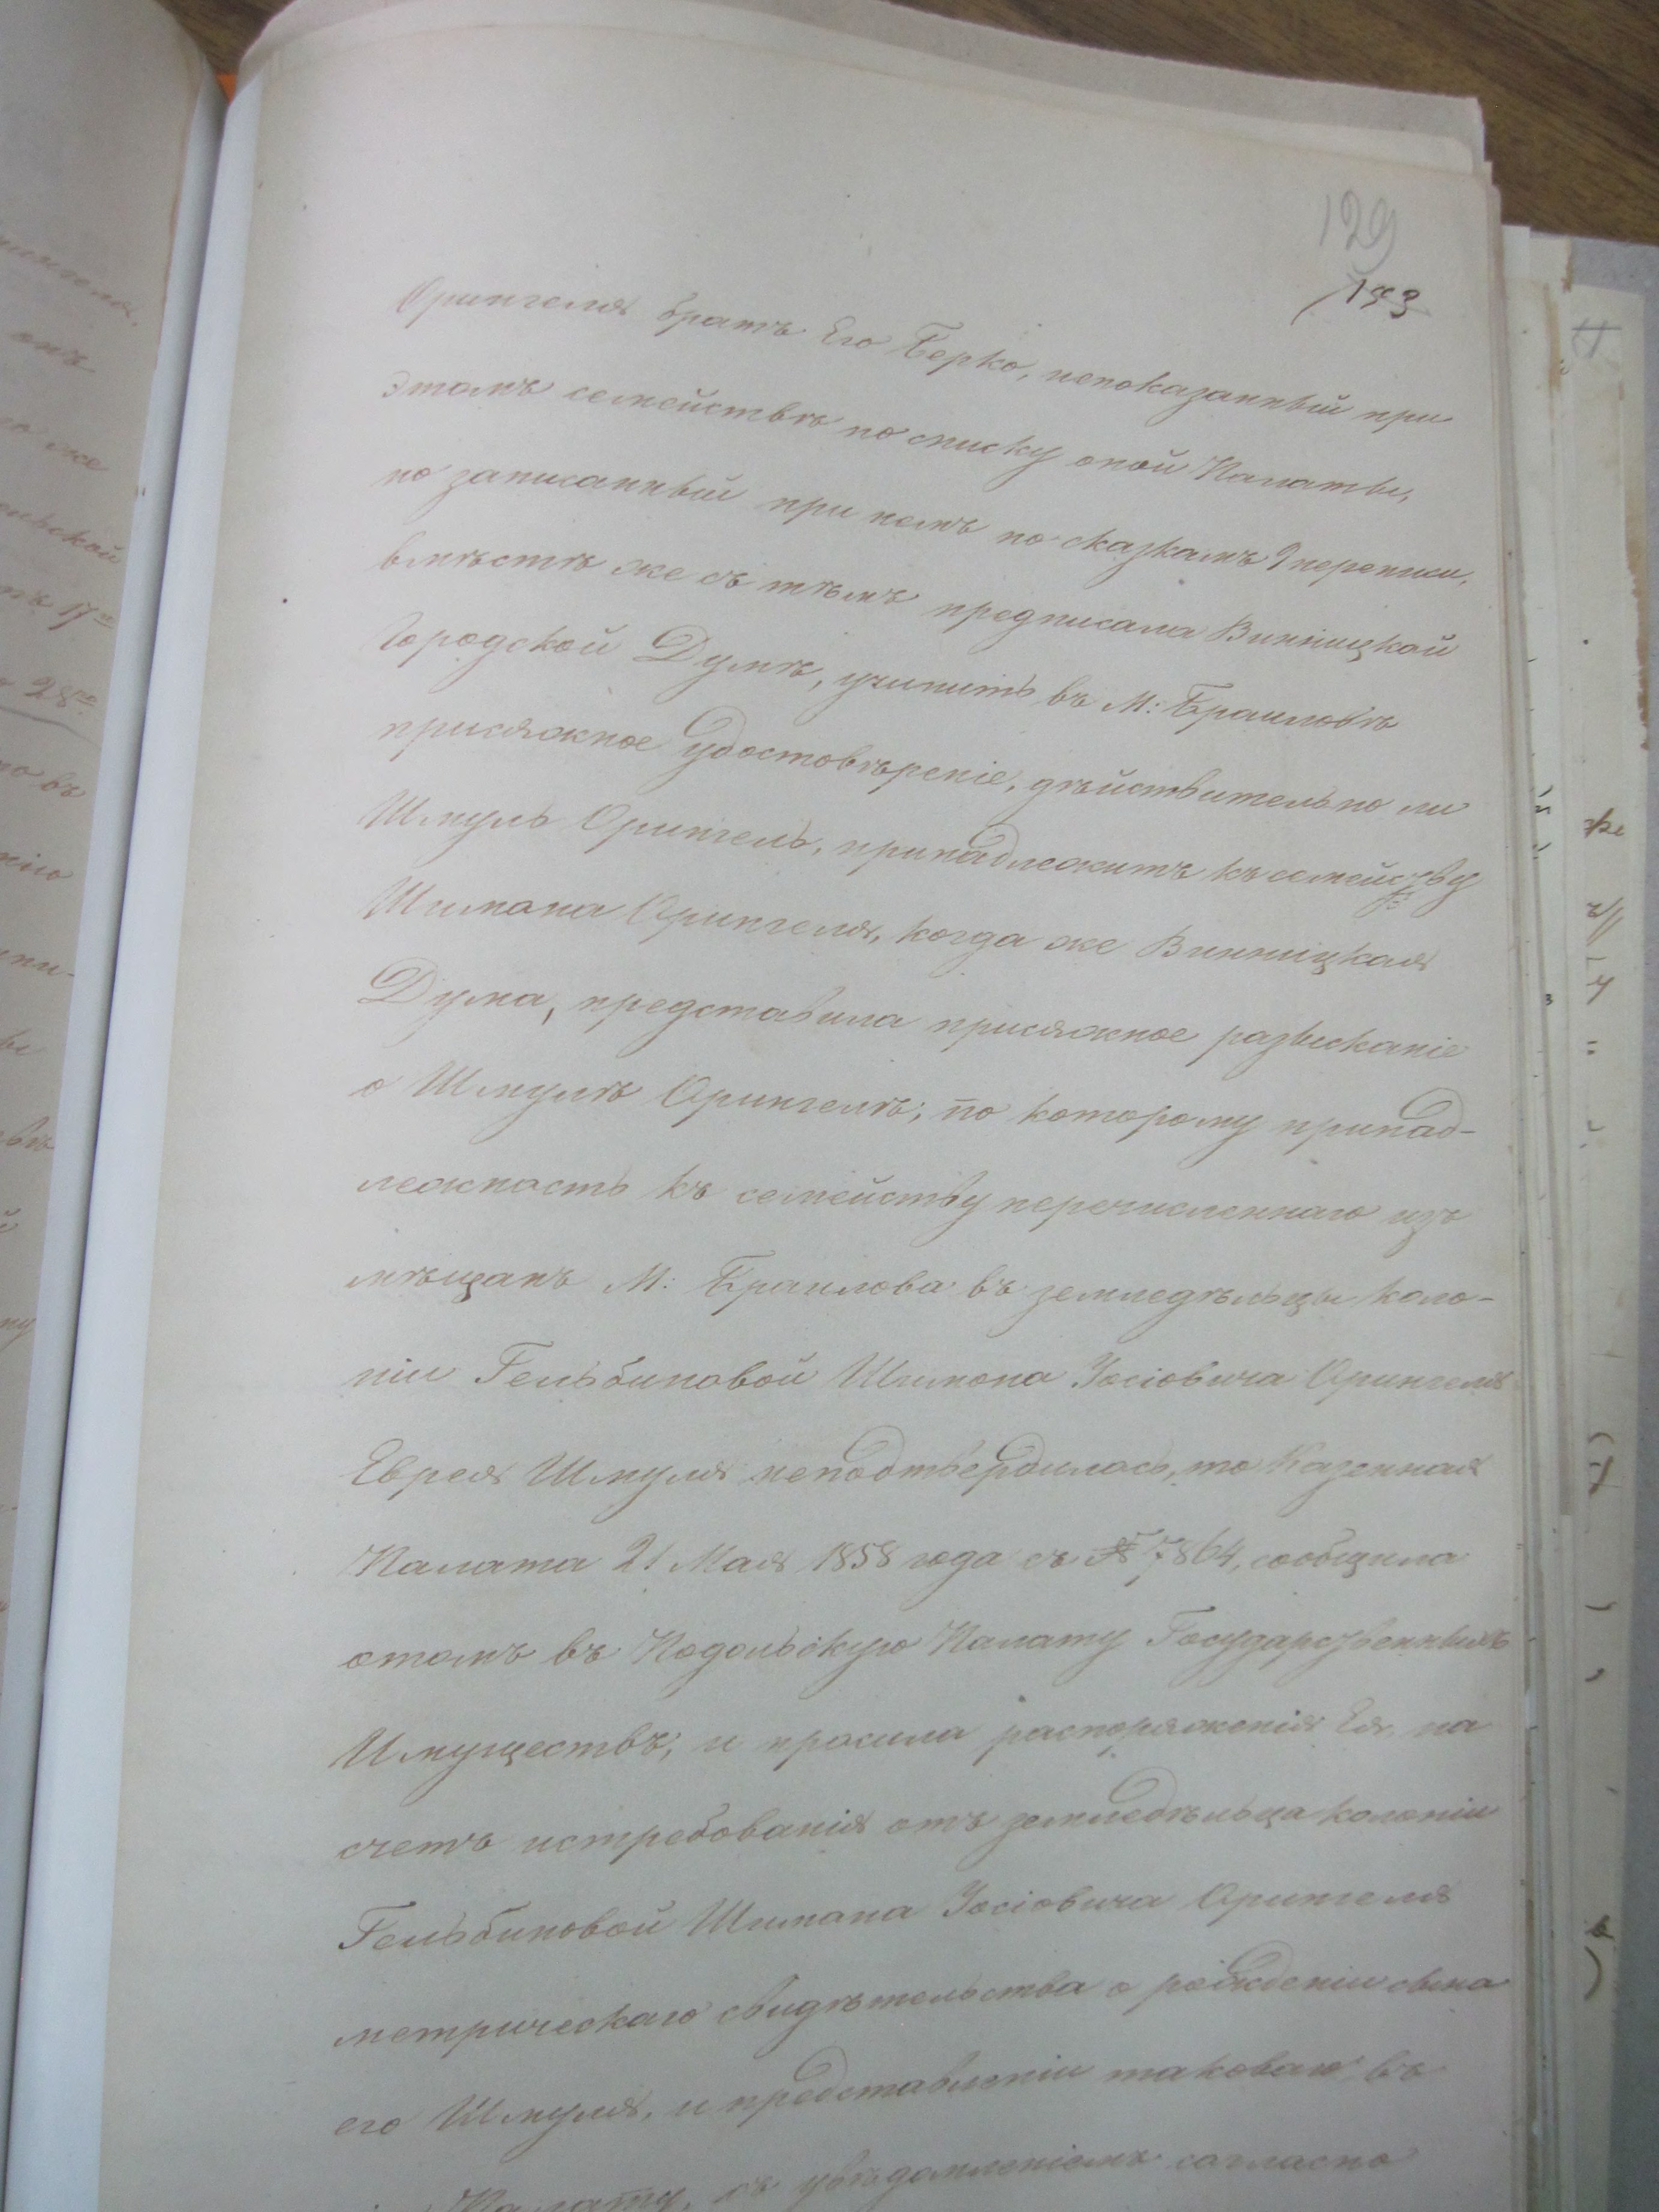 129
193
Орингеля братъ Его Берко, непоказанный при
этомъ семействѣ по списку оной Палаты,
но записанный при немъ по сказкамъ 9 переписи,
вмѣстѣ же съ тѣмъ предписала Винницкой
Городской Думѣ, учинить въ М: Браиловѣ
присяжное удостовѣреніе, дѣйствительно ли
Шмуль Орингель, принадлежитъ къ семейству
Шимана Орингеля, когда же Винницкая
Дума, представила присяжное разысканіе
о Шмулѣ Орингелѣ, по которому принад-
лежность къ семейству перечисленнаго изъ
мѣщанъ М: Браилова въ земледѣльцы коло-
ніи Гельбиновой Шимона Іосіовича Орингеля
Еврея Шмуля неподтвердилась, то Казенная
Палата 21 Мая 1858 года съ № 7864, сообщила
отомъ въ Подольскую Палату Государственныхъ
Имуществъ, и просила распоряженія Ея, на
счетъ истребованія отъ земледѣльца колоніи
Гельбиновой Шимана Іосіовича Орингеля
метрическаго свидѣтельства о рожденіи сына
его Шмуля, и представленіи таковаго въ
Палату, съ увѣдомленіемъ согласно